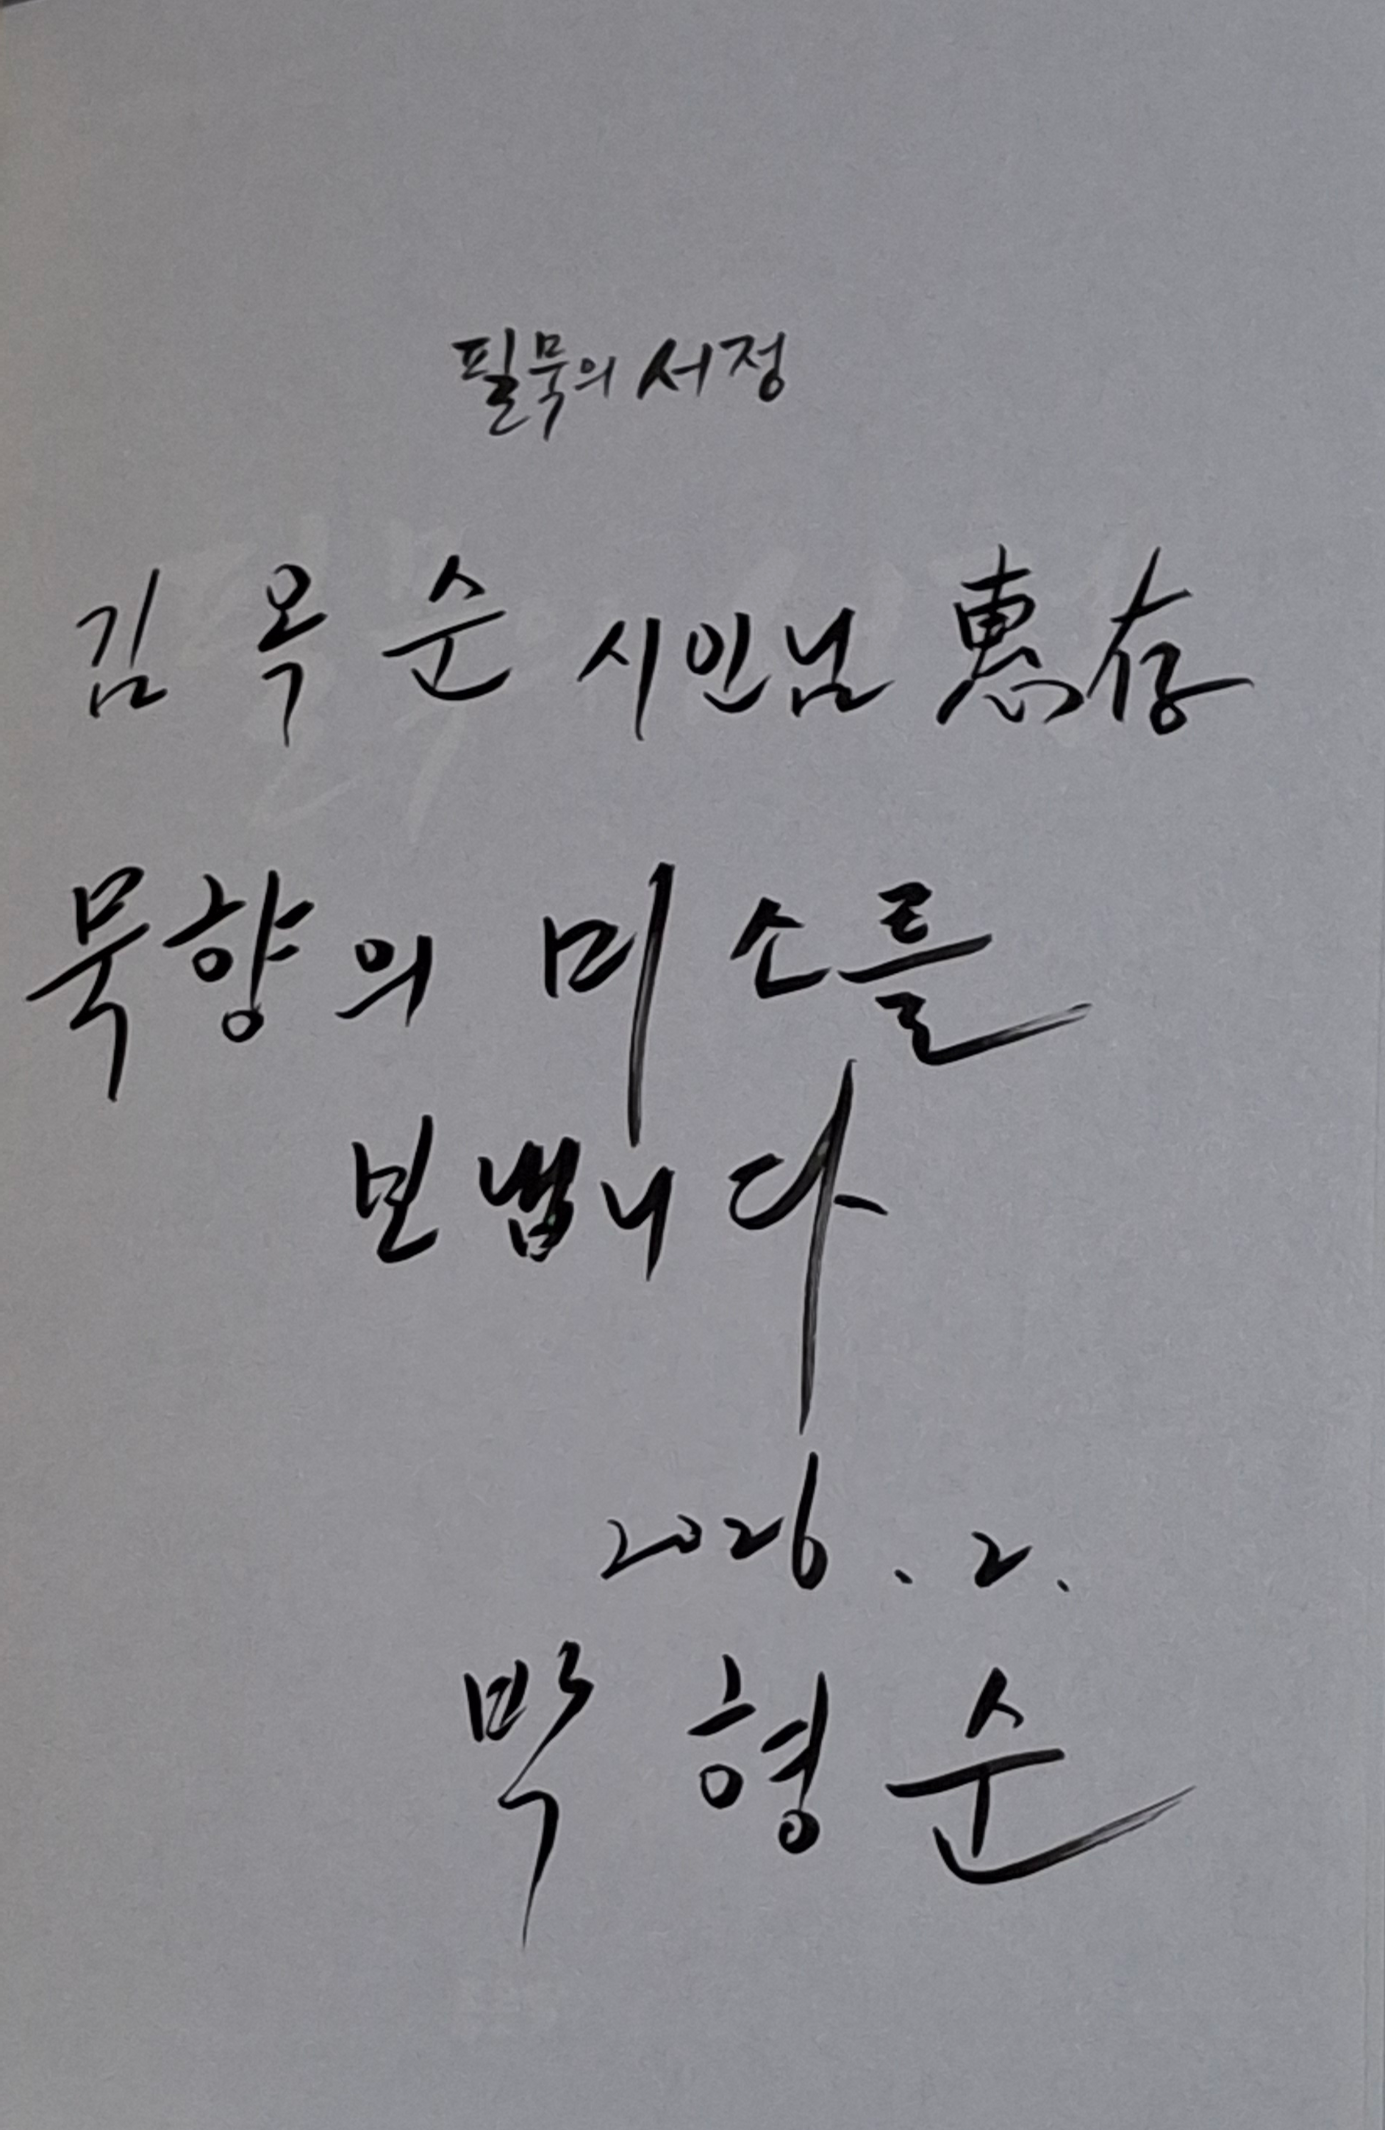 필묵의 서정
김옥순 시인님 惠存
묵향의 미소를
보냅니다
2026. 2.
박형순